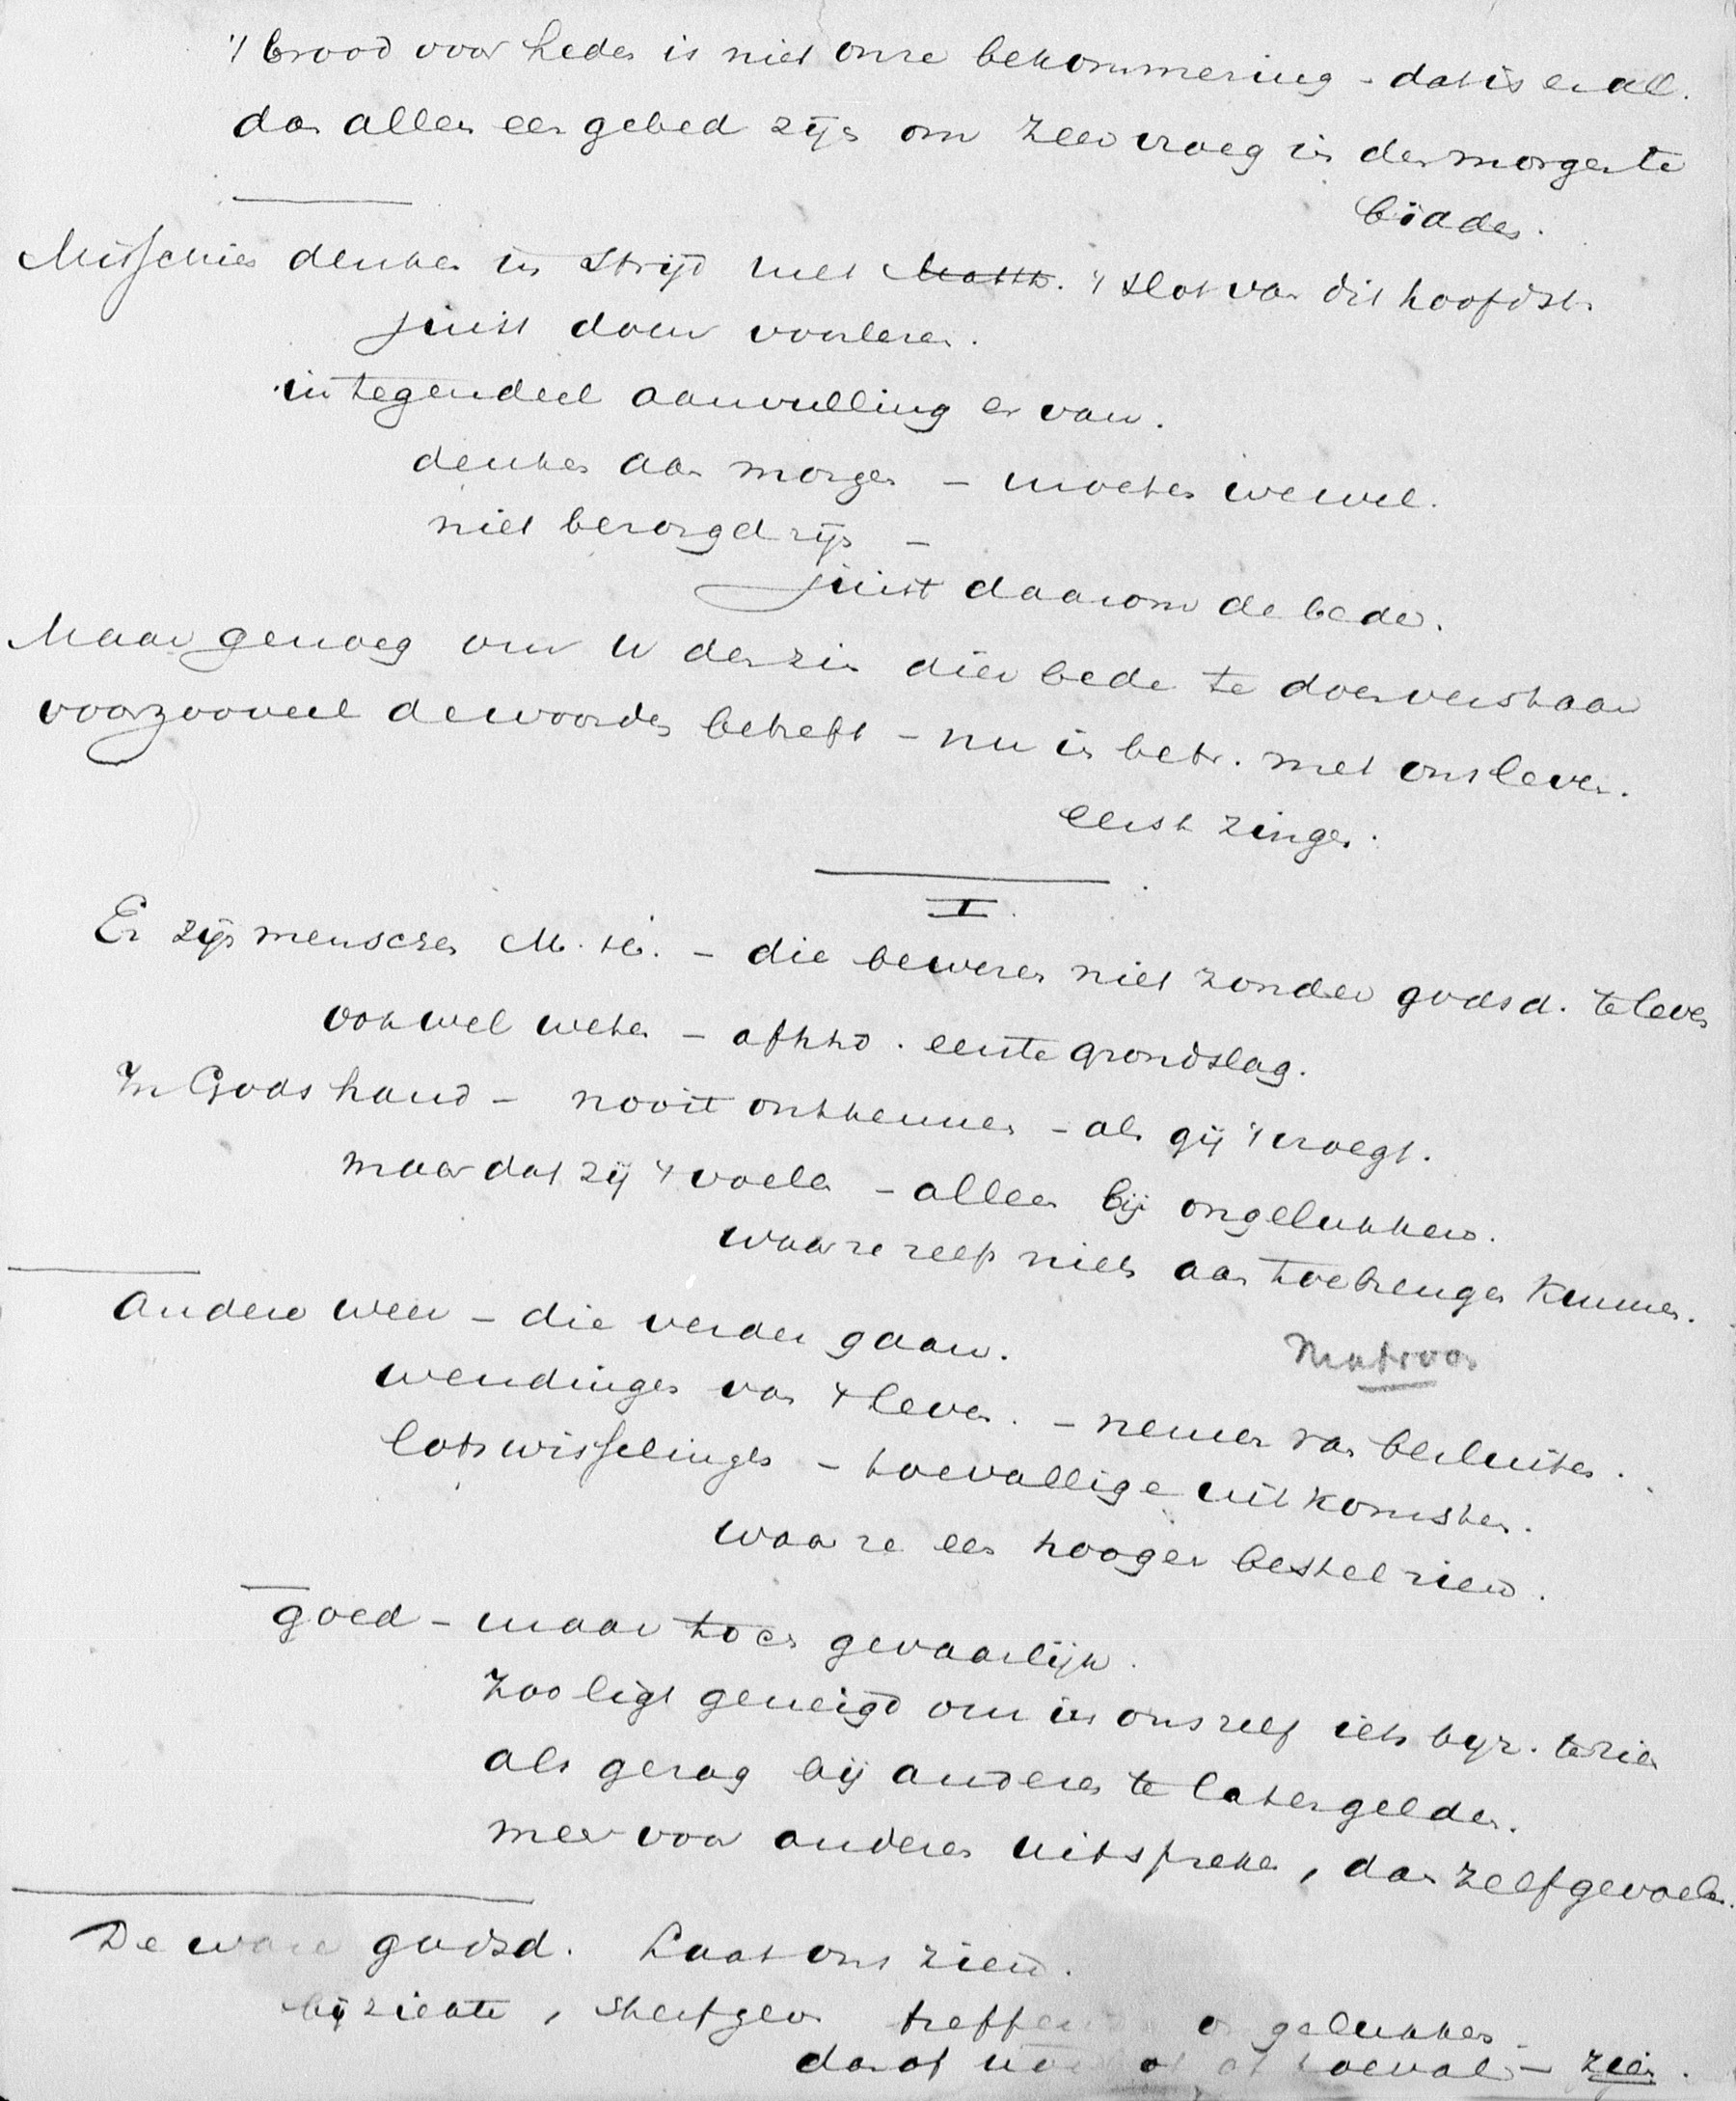 't brood voor heden is niet onze bekommering - dat is er al.
dan alleen een gebed zijn om zeer vroeg in den morgen te
bidden.
Misschien denken in strijd met Matth. 't slot van dit hoofdst.
juist doen voorlezen.
integendeel aanvulling er van.
denken aan morgen - moeten we wel.
niet bezorgd zijn -
juist daarom de bede.
Maar genoeg om U den zin dier bede te doen verstaan
voorzooveel de woorden betreft - nu in betr. met ons leven.
eerst zingen.
I.
Er zijn menschen M. H. - die beweren niet zonder godsd. te leven
ook wel weten - afhkd. eerste grondslag.
In Gods hand - nooit ontkennen - als gij 't vroegt.
maar dat zij 't voelen - alleen bij ongelukken.
waar ze zelf niets aan toebrengen kunnen.
Matroos
Andere weer - die verder gaan.
wendingen van 't leven. - nemen van besluiten.
lotswisselingen - toevallige uitkomsten.
waar ze een hooger bestel zien.
goed - maar toch gevaarlijk.
Zoo ligt geneigd om in ons zelf iets bijz. te zien
als gezag bij anderen te laten gelden.
meer voor anderen uitspreken, dan zelf gevoelen.
De ware godsd. Laat ons zien.
bij ziekte, sterfgev. treffende ongelukken
dan of of toeval - zien.